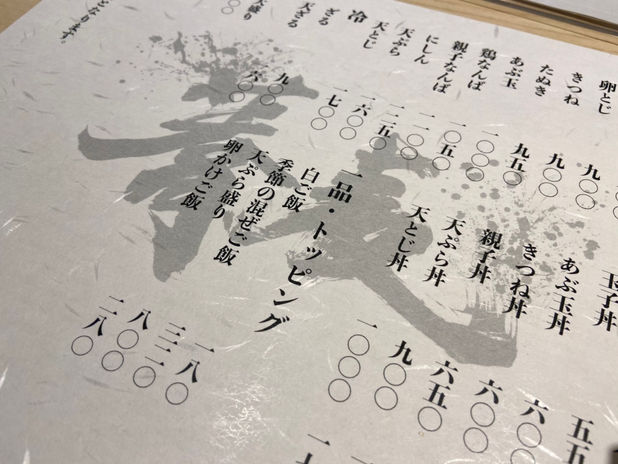 卵とじ
きつね
たぬき
あぶ玉
鶏なんば
親子なんば
にしん
天ぷら
天とじ
冷
ざる
天ざる
天盛り
となります。
九〇〇
九〇〇
九五〇
一〇〇〇
一〇五〇
一一〇〇
一二五〇
一六〇〇
一七〇〇
九〇〇
六〇〇
玉子丼
あぶ玉丼
きつね丼
親子丼
天ぷら丼
天とじ丼
五五
六〇〇
六〇〇
六五〇
九〇〇
一〇〇〇
一品・トッピング
白ご飯
季節の混ぜご飯
天ぷら盛り
卵かけご飯
一八〇
三二〇
八〇〇
二八〇